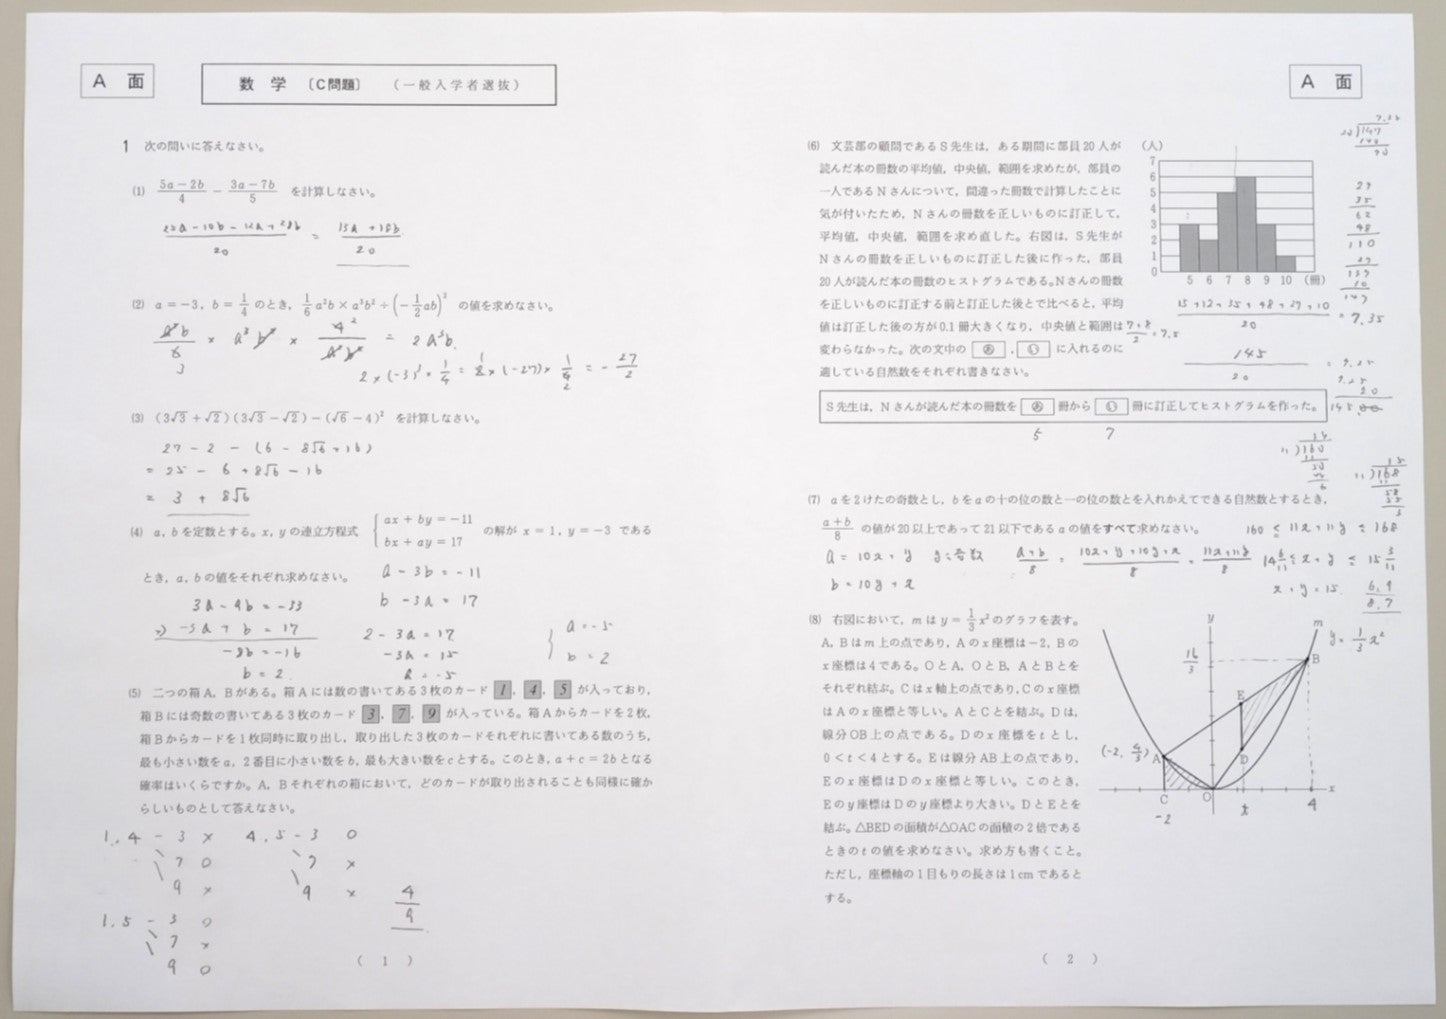 A 面
数 学 〔C問題〕 (一般入学者選抜)
1 次の問いに答えなさい。
(1) \frac{5a-2b}{4} - \frac{3a-7b}{5} を計算しなさい。
(2) a=-3, b=\frac{1}{4} のとき, \frac{1}{6}a²b×a³b²÷(-\frac{1}{2}ab)² の値を求めなさい。
= 2a³b
2×(-3)³×\frac{1}{4} = 2×(-27)×\frac{1}{4} = -\frac{27}{2}
(3) (3√3+√2)(3√3-√2)-(√6-4)² を計算しなさい。
27 - 2 - (6 - 8√6 + 16)
= 25 - 6 + 8√6 - 16
= 3 + 8√6
(4) a, bを定数とする。x, yの連立方程式 { ax+by=-11
bx+ay=17 の解が x=1, y=-3 である
とき, a, bの値をそれぞれ求めなさい。
a - 3b = -11
b - 3a = 17
3a - 9b = -33
+) -3a + b = 17
-8b = -16
b = 2
2 - 3a = 17
-3a = 15
a = -5
{ a = -5
b = 2
(5) 二つの箱A, Bがある。箱Aには数の書いてある3枚のカード 1, 4, 5 が入っており,
箱Bには奇数の書いてある3枚のカード 3, 7, 9 が入っている。箱Aからカードを2枚,
箱Bからカードを1枚同時に取り出し, 取り出した3枚のカードそれぞれに書いてある数のうち,
最も小さい数をa, 2番目に小さい数をb, 最も大きい数をcとする。このとき, a+c=2bとなる
確率はいくらですか。A, Bそれぞれの箱において, どのカードが取り出されることも同様に確か
らしいものとして答えなさい。
1, 4 - 3 ×
7 ○
9 ×
4, 5 - 3 ○
7 ×
9 ×
\frac{4}{9}
1, 5 - 3 ○
7 ×
9 ○
( 1 )
A 面
(6) 文芸部の顧問であるS先生は, ある期間に部員20人が
読んだ本の冊数の平均値, 中央値, 範囲を求めたが, 部員の
一人であるNさんについて, 間違った冊数で計算したことに
気が付いたため, Nさんの冊数を正しいものに訂正して,
平均値, 中央値, 範囲を求め直した。右図は, S先生が
Nさんの冊数を正しいものに訂正した後に作った, 部員
20人が読んだ本の冊数のヒストグラムである。Nさんの冊数
を正しいものに訂正する前と訂正した後とで比べると, 平均
値は訂正した後の方が0.1冊大きくなり, 中央値と範囲は
変わらなかった。次の文中の あ , い に入れるのに
適している自然数をそれぞれ書きなさい。
(人)
7
6
5
4
3
2
1
0
5 6 7 8 9 10 (冊)
\frac{15+12+35+48+27+10}{20} = 7.35
\frac{7+8}{2} = 7.5
\frac{145}{20} = 7.25
S先生は, Nさんが読んだ本の冊数を あ 冊から い 冊に訂正してヒストグラムを作った。
5 7
(7) aを2けたの奇数とし, bをaの十の位の数と一の位の数とを入れかえてできる自然数とするとき,
\frac{a+b}{8} の値が20以上であって21以下であるaの値をすべて求めなさい。
160 ≦ 11x+11y ≦ 168
a = 10x+y y:奇数 \frac{a+b}{8} = \frac{10x+y+10y+x}{8} = \frac{11x+11y}{8}
14\frac{6}{11} ≦ x+y ≦ 15\frac{3}{11}
b = 10y+x
x+y=15
6, 9
8, 7
(8) 右図において, mは y=\frac{1}{3}x² のグラフを表す。
A, Bはm上の点であり, Aのx座標は-2, Bの
x座標は4である。OとA, OとB, AとBとを
それぞれ結ぶ。Cはx軸上の点であり, Cのx座標
はAのx座標と等しい。AとCとを結ぶ。Dは,
線分OB上の点である。Dのx座標をtとし,
0<t<4とする。Eは線分AB上の点であり,
Eのx座標はDのx座標と等しい。このとき,
Eのy座標はDのy座標より大きい。DとEとを
結ぶ。△BEDの面積が△OACの面積の2倍である
ときのtの値を求めなさい。求め方も書くこと。
ただし, 座標軸の1目もりの長さは1cmであると
する。
y
m
y = \frac{1}{3}x²
\frac{16}{3}
B
E
(-2, \frac{4}{3})
A
D
C
O
x
-2
t
4
( 2 )